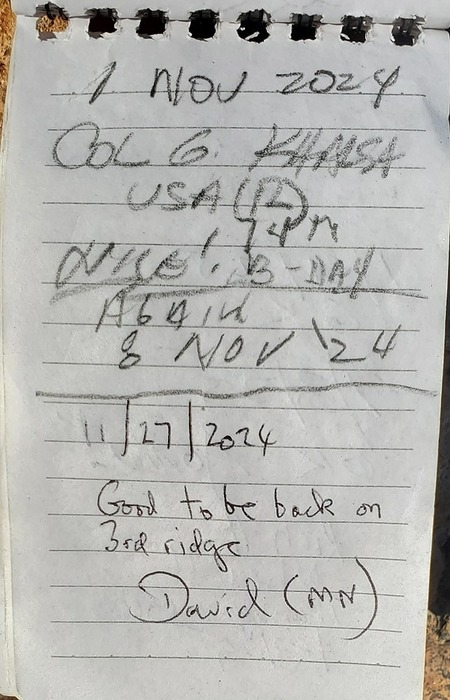 1 NOV 2024
COL G. KHALSA
USA (R)
74TH
NICE! B-DAY
AGAIN
8 NOV '24
11/27/2024
Good to be back on
3rd ridge
David (MN)